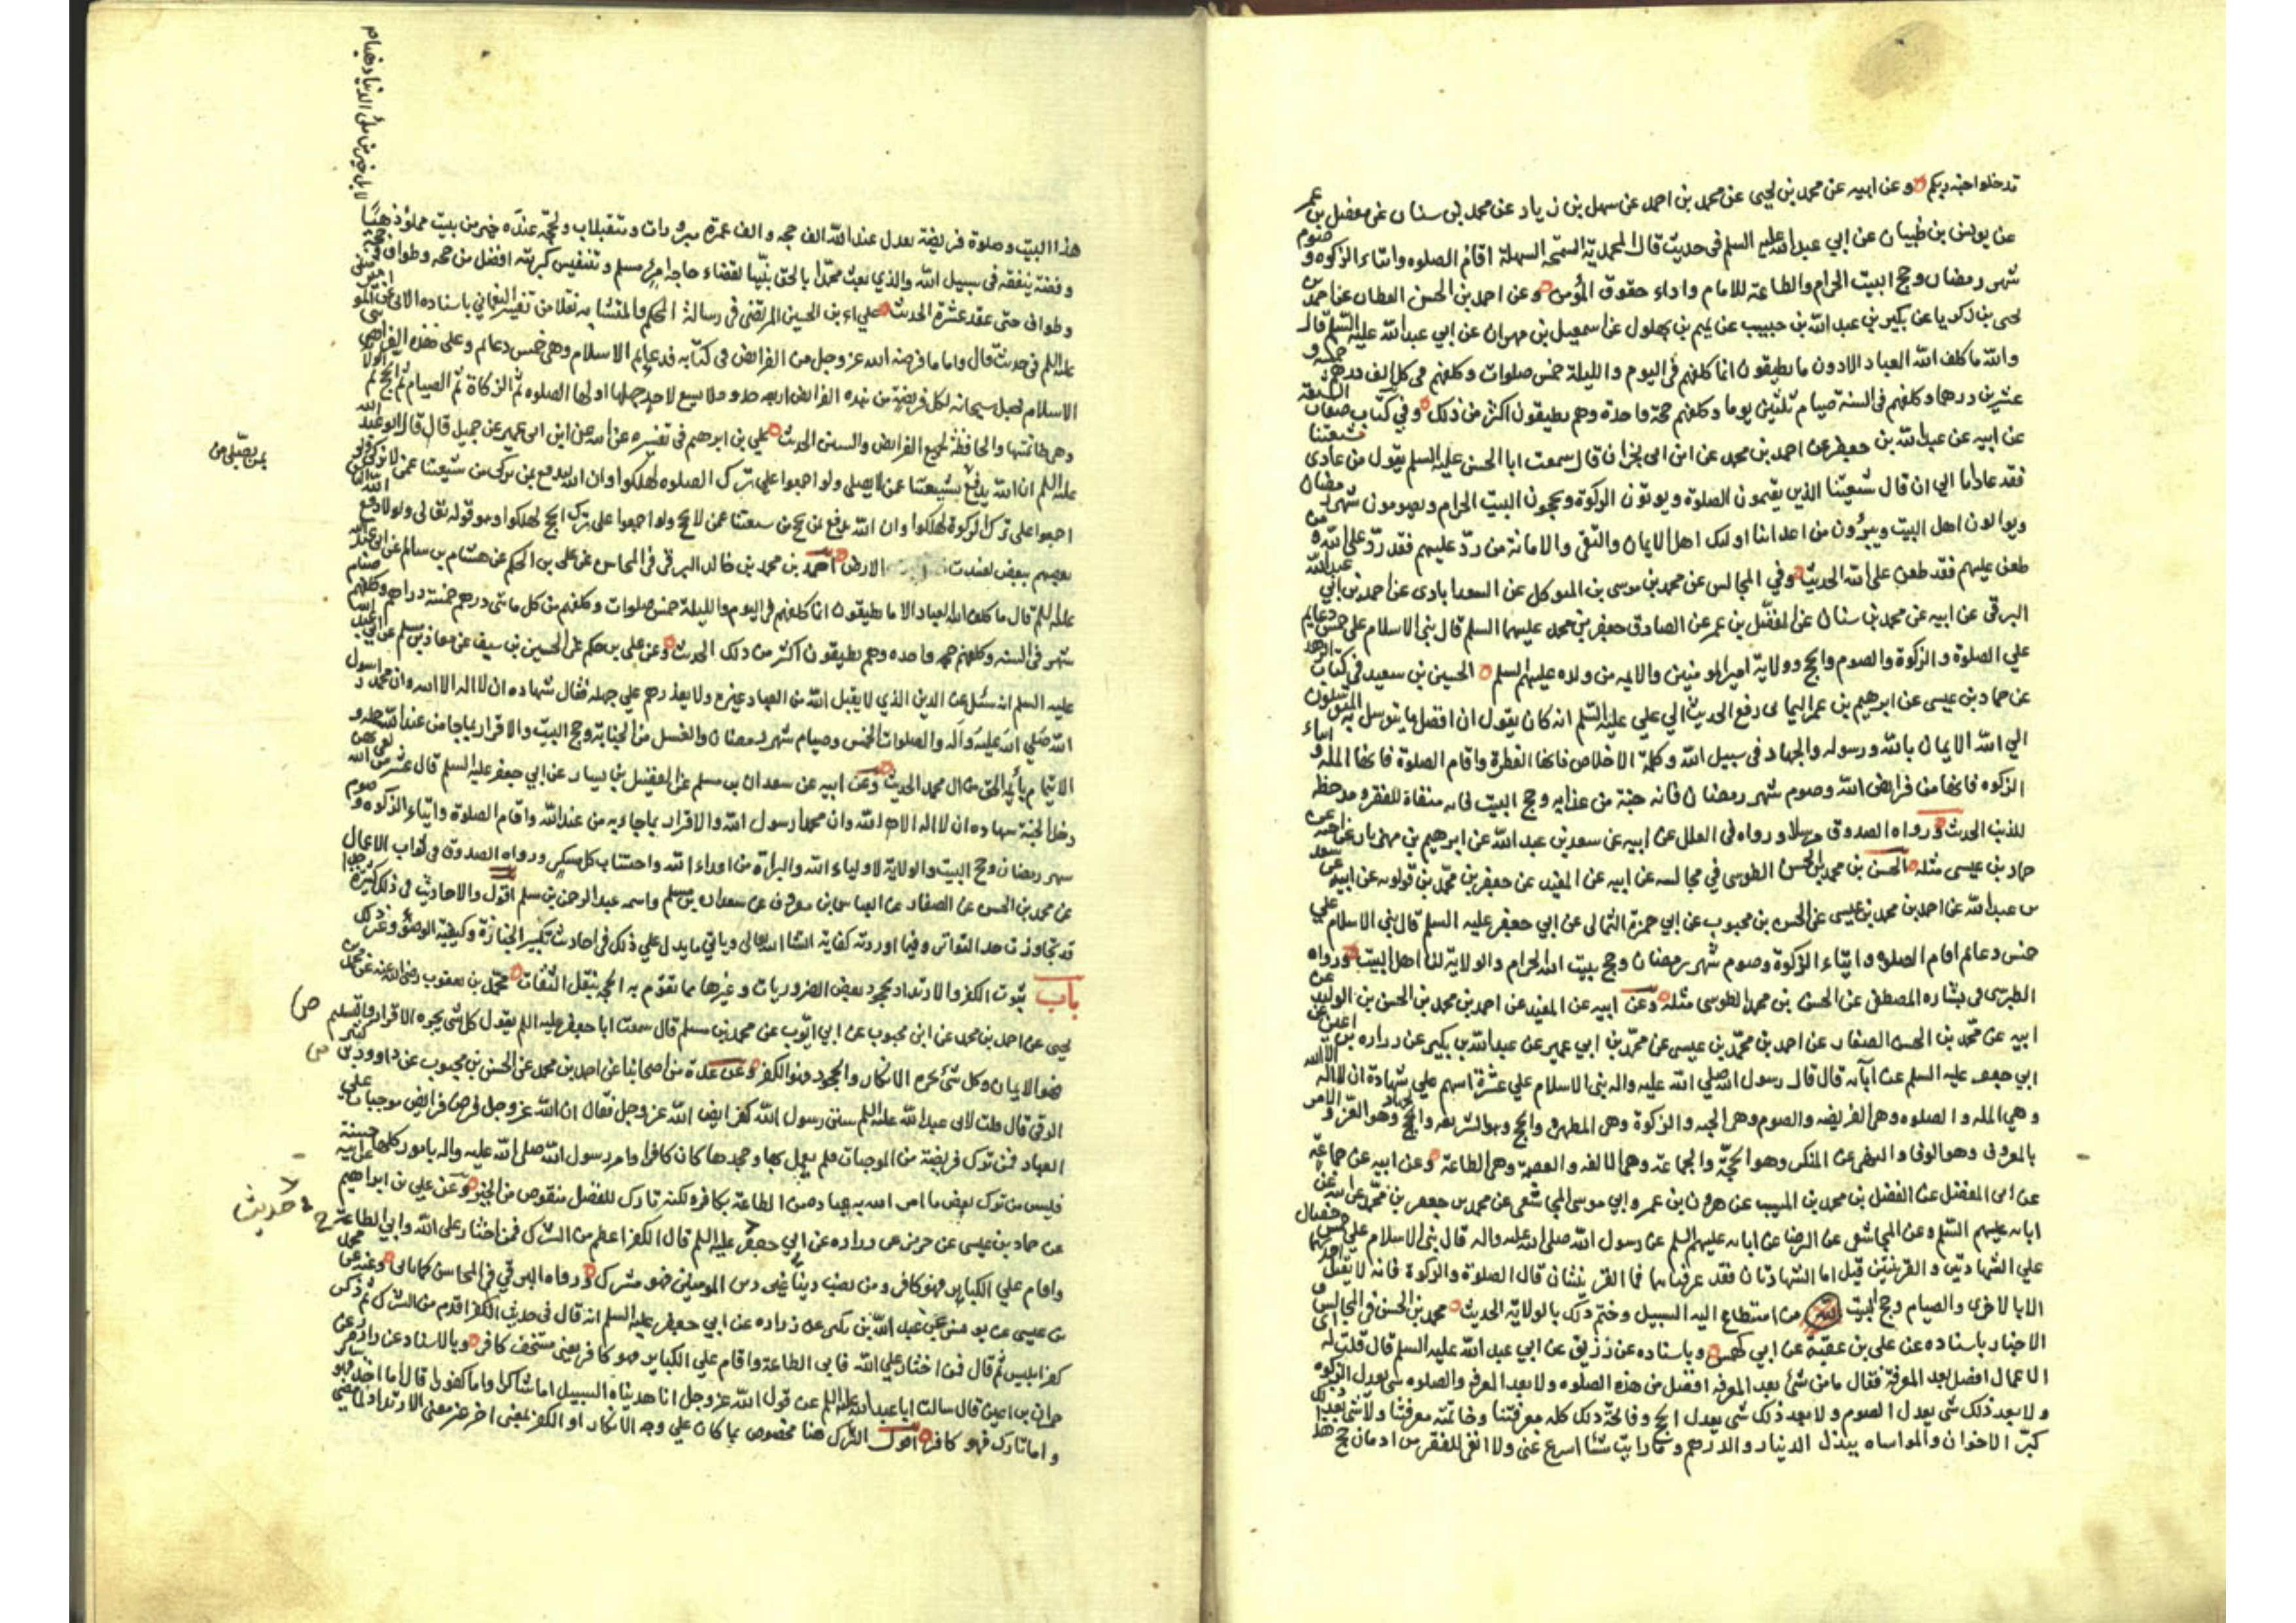 تدخلوا جنة ربكم وعن ابيه عن محمد بن يحيى عن محمد بن احمد عن سهل بن زياد عن محمد بن سنان عن مفضل بن عمر
عن يونس بن ظبيان عن ابي عبد الله عليه السلم في حديث قال المحمدية السمحة السهلة اقام الصلوه وايتاء الزكوه و صوم
شهر رمضان وحج البيت الحرام والطاعة للامام واداء حقوق المؤمن وعن احمد بن الحسن القطان عن احمد بن
يحيى بن زكريا عن بكير بن عبد الله بن حبيب عن تميم بن بهلول عن اسمعيل بن مهران عن ابي عبد الله عليه السلم قال
والله ما كلف الله العباد الا دون ما يطيقون انما كلفهم في اليوم والليلة خمس صلوات وكلفهم في كل الف درهم خمسة و
عشرين درهما وكلفهم في السنة صيام ثلثين يوما وكلفهم حجة واحدة وهم يطيقون اكثر من ذلك وفي كتاب صفات الشيعة
عن ابيه عن عبد الله بن جعفر عن احمد بن محمد عن ابن ابي نجران قال سمعت ابا الحسن عليه السلم يقول من عادى شيعتنا
فقد عادانا الى ان قال شيعتنا الذين يقيمون الصلوة ويوتون الزكوة ويحجون البيت الحرام ويصومون شهر رمضان
ويوالون اهل البيت ويبرؤن من اعدائنا اولئك اهل الايمان والتقى والامانة من ردّ عليهم فقد ردّ على الله و من
طعن عليهم فقد طعن على الله الحديث وفي المجالس عن محمد بن موسى بن المتوكل عن السعدابادى عن احمد بن ابي عبد الله
البرقي عن ابيه عن محمد بن سنان عن المفضّل بن عمر عن الصادق جعفر بن محمد عليهما السلم قال بني الاسلام على خمس دعايم
على الصلوة والزكوة والصوم والحج وولاية امير المومنين والايمه من ولده عليهم السلم الحسين بن سعيد في كتاب الزهد
عن حماد بن عيسى عن ابراهيم بن عمر اليماني رفع الحديث الى علي عليه السّلم انه كان يقول ان افضل ما يتوسل به المتوسلون
الى الله الايمان بالله ورسوله والجهاد في سبيل الله وكلمة الاخلاص فانها الفطرة واقام الصلوة فانها الملة و ايتاء
الزكوه فانها من فرايض الله وصوم شهر رمضان فانه جنة من عذابه وحج البيت فانه منفاة للفقر ومدحضة
للذنب الحديث ورواه الصدوق مرسلا ورواه في العلل عن ابيه عن سعد بن عبد الله عن ابرهيم بن مهزيار عن اخيه عن
حماد بن عيسى مثله الحسن بن محمد بن الحسن الطوسى في مجالسه عن ابيه عن المفيد عن جعفر بن محمّد بن قولويه عن ابيه عن سعد
بن عبد الله عن احمد بن محمد بن عيسى عن الحسن بن محبوب عن ابي حمزة الثمالى عن ابي جعفر عليه السلم قال بني الاسلام على
خمس دعائم اقام الصلوه وايتاء الزكوة وصوم شهر رمضان وحج بيت الله الحرام والولاية لنا اهل البيت ورواه
الطبرسى في بشاره المصطفى عن الحسن بن محمد الطوسى مثله وعن ابيه عن المفيد عن احمد بن محمد بن الحسن بن الوليد عن
ابيه عن محمّد بن الحسن الصفار عن احمد بن محمّد بن عيسى عن محمّد بن ابي عمير عن عبد الله بن بكير عن زراره بن اعين عن
ابي جعفر عليه السلم عن آبائه قال قال رسول الله صلى الله عليه واله بني الاسلام على عشرة اسهم على شهادة ان لا اله الا الله
وهي الملة والصلوه وهي الفريضه والصوم وهي الجنه والزكوة وهي المطهره والحج وهو الشريعه والجهاد وهو العز و الامر
بالمعروف وهو الوفى والنهى عن المنكر وهو الحجّة والجماعة وهي الالفه والعصمة وهي الطاعة وعن ابيه عن جماعة
عن ابي المفضل عن الفضل بن محمد بن المسيب عن هرون بن عمرو ابي موسى المجاشعى عن محمد بن جعفر بن محمّد عن ابيه عن
ابائه عليهم السّلم وعن المجاشعى عن الرضا عن ابائه عليهم السلم عن رسول الله صلى الله عليه واله قال بني الاسلام على خمس خصال
على الشهادتين والقرينتين قيل اما الشهادتان فقد عرفناهما فما القرينتان قال الصلوة والزكوة فانه لا يقبل احدهما
الا بالاخرى والصيام وحج البيت من استطاع اليه السبيل وختم ذلك بالولاية الحديث محمد بن الحسن في المجالس و
الاخبار باسناده عن علي بن عقبة عن ابي كهمس وباسناده عن رزيق عن ابي عبد الله عليه السلم قال قلت له اى
الاعمال افضل بعد المعرفة فقال ما من شئ بعد المعرفه افضل من هذه الصلوه ولا بعد المعرفه والصلوه شئ يعدل الزكوه
ولا بعد ذلك شئ يعدل الصوم ولا بعد ذلك شئ يعدل الحج وفاتحة ذلك كله معرفتنا وخاتمته معرفتنا ولا شئ بعد ذلك
كبرّ الاخوان والمواساه ببذل الدينار والدرهم وما رايت شئا اسرع غنى ولا انفى للفقر من ادمان حج هذا
هذا البيت وصلوة فريضة تعدل عند الله الف حجه والف عمرة مبرورات ومتقبلات ولحجّة عنده خير من بيت مملوّ ذهبًا
لا بل خير من ملئ الدنيا ذهبا
وفضة ينفقه في سبيل الله والذي بعث محمّدا بالحق نبيّا لقضاء حاجة امرئ مسلم وتنفيس كربته افضل من حجه وطواف وحجة
وطواف حتى عقد عشرة الحديث علي بن الحسين المرتضى في رسالة المحكم والمتشابه نقلا من تفسير النعماني باسناده الاتى عن على
عليه السلم في حديث قال واما ما فرضه الله عز وجل من الفرايض في كتابه فدعايم الاسلام وهي خمس دعايم وعلى هذه الفرايض بني
الاسلام فجعل سبحانه لكل فريضة من هذه الفرايض اربعه حدود لا يسع لاحد جهلها اولها الصلوه ثم الزكاة ثم الصيام ثم الحج ثم الولاية
وهي خاتمتها والحافظة لجميع الفرايض والسنن الحديث علي بن ابرهيم في تفسيره عن ابيه عن ابن ابى عمير عن جميل قال قال ابو عبد الله
عليه السلم ان الله يدفع بمن يصلى من شيعتنا عمن لا يصلى ولو اجمعوا على ترك الصلوه لهلكوا وان الله يدفع بمن يزكى من شيعتنا عمن لا يزكى ولو
بمن يصلّى من
اجمعوا على ترك الزكوة لهلكوا وان الله يدفع بمن يحج من شيعتنا عمن لا يحج ولو اجمعوا على ترك الحج لهلكوا وهو قوله تعالى ولولا دفع الله الناس
بعضهم ببعض لفسدت الارض احمد بن محمد بن خالد البرقي في المحاسن عن علي بن الحكم عن هشام بن سالم عن ابي عبد الله
عليه السلم قال ما كلف الله العباد الا ما يطيقون انما كلفهم في اليوم والليلة خمس صلوات وكلفهم من كل مائتى درهم خمسة دراهم وكلفهم صيام
شهر في السنه وكلفهم حجه واحده وهم يطيقون اكثر من ذلك الحديث وعن علي بن حكم عن الحسين بن سيف عن معاذ بن مسلم عن ابي عبد الله
عليه السلم انه سئل عن الدين الذي لا يقبل الله من العباد غيره ولا يعذرهم على جهله فقال شهاده ان لا اله الا الله وان محمدا رسول
الله صلى الله عليه وآله والصلوات الخمس وصيام شهر رمضان والغسل من الجنابة وحج البيت والاقرار بما جاء من عند الله جملة و
الايتمام بأئمة الحق من ال محمد الحديث وعن ابيه عن سعدان بن مسلم عن الفضيل بن يسار عن ابي جعفر عليه السلم قال عشر من لقى الله بهن
دخل الجنة شهاده ان لا اله الا الله وان محمدا رسول الله والاقرار بما جاء به من عند الله واقام الصلوة وايتاء الزكوه و صوم
شهر رمضان وحج البيت والولاية لاولياء الله والبراة من اعداء الله واجتناب كل مسكر ورواه الصدوق في ثواب الاعمال
عن محمد بن الحسن عن الصفار عن العباس بن معروف عن سعدان بن مسلم واسمه عبد الرحمن بن مسلم اقول والاحاديث في ذلك كثيرة جدا
قد تجاوزت حد التواتر وفيما اوردته كفاية انشاء الله تعالى وياتي ما يدل على ذلك في احاديث تكبير الجنازة وكيفية الوضؤ وغير ذلك
باب ثبوت الكفر والارتداد بجحود بعض الضروريات وغيرها مما تقوم به الحجه بنقل الثقات محمّد بن يعقوب رضى الله عنه عن محمد بن
يحيى عن احمد بن محمد عن ابن محبوب عن ابي ايّوب عن محمد بن مسلم قال سمعت ابا جعفر عليه السلم يقول كل شئ يجره الاقرار والتسليم ص
فهو الايمان وكل شئ يجره الانكار والجحود فهو الكفر وعن عدة من اصحابنا عن احمد بن محمد عن الحسن بن محبوب عن داوود بن كثير ص
الرقي قال قلت لابى عبد الله عليه السلم سنن رسول الله كفرايض الله عز وجل فقال ان الله عز وجل فرض فرايض موجبات على
العباد فمن ترك فريضة من الموجبات فلم يعمل بها وجحدها كان كافرا وامر رسول الله صلى الله عليه واله بامور كلها حسنة
فليس من ترك بعض ما امر الله به عباده من الطاعة بكافر ولكنه تارك للفضل منقوص من الخير وعن علي بن ابراهيم عن ابيه
عن حماد بن عيسى عن حريز عن زراره عن ابي جعفر عليه السلم قال الكفر اعظم من الشرك فمن اختار على الله وابى الطاعة
حديث
واقام على الكباير فهو كافر ومن نصب دينا غير دين المومنين فهو مشرك ورواه البرقي في المحاسن كما ياتي وعنه عن محمد
بن عيسى عن يونس عن عبد الله بن بكير عن زراره عن ابي جعفر عليه السلم انه قال في حديث الكفر اقدم من الشرك ثم ذكر
كفر ابليس ثم قال فمن اختار على الله فابى الطاعة واقام على الكباير فهو كافر يعنى مستخف كافر وبالاسناد عن زرارة عن
حمران بن اعين قال سالت ابا عبد الله عليه السلم عن قول الله عز وجل انا هديناه السبيل اما شاكرا واما كفورا قال اما اخذ فهو شاكر
واما تارك فهو كافر اقول الترك هنا مخصوص بما كان على وجه الانكار او الكفر بمعنى اخر غير معنى الارتداد لما مضى